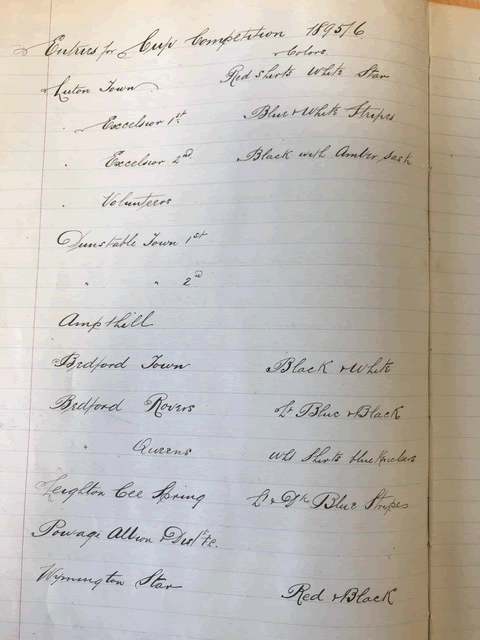 Entries for Cup Competition 1895/6
Colors
Luton Town Red Shirts White Star
" Excelsior 1st Blue & White Stripes
" Excelsior 2nd Black with Amber Sash
" Volunteers
Dunstable Town 1st
" " 2nd
Ampthill
Bedford Town Black & White
Bedford Rovers Lt Blue & Black
" Queens Wht Shirts blue
Leighton Cee Spring Lt & Dk Blue Stripes
Albion & Dist F.C.
Wymington Star Red & Black